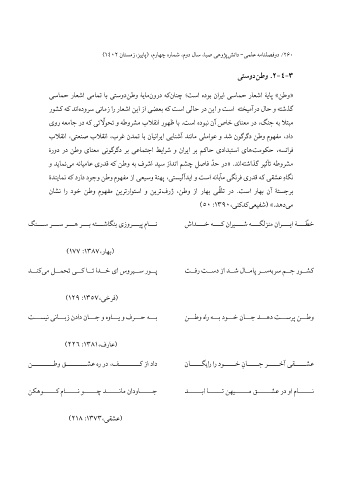 ۲۶۰/ دوفصلنامه علمی- دانش‌پژوهی صبا، سال دوم، شماره چهارم، (پاییز، زمستان ۱۴۰۲)
۳-۴-۲. وطن‌دوستی
«وطن» پایۀ اشعار حماسی ایران بوده است؛ چنان‌که درون‌مایۀ وطن‌دوستی با تمامی اشعار حماسی
گذشته و حال درآمیخته است و این در حالی است که بعضی از این اشعار را زمانی سروده‌اند که کشور
مبتلا به جنگ، در معنای خاص آن نبوده است. با ظهور انقلاب مشروطه و تحولاتی که در جامعه روی
داد، مفهوم وطن دگرگون شد و عواملی مانند آشنایی ایرانیان با تمدن غرب، انقلاب صنعتی، انقلاب
فرانسه، حکومت‌های استبدادی حاکم بر ایران و شرایط اجتماعی بر دگرگونی معنای وطن در دورۀ
مشروطه تأثیر گذاشته‌اند. «در حدّ فاصل چشم انداز سید اشرف به وطن که قدری عامیانه می‌نماید و
نگاه عشقی که قدری فرنگی مآبانه است و ایدآلیستی، پهنۀ وسیعی از مفهوم وطن وجود دارد که نمایندۀ
برجستۀ آن بهار است. در تلقّی بهار از وطن، ژرف‌ترین و استوارترین مفهوم وطن خود را نشان
می‌دهد.» (شفیعی‌کدکنی، ۱۳۹۰: ۵۰)
خطّۀ ایران منزلگه شیران که خداش نام پیروزی بنگاشته بر هر سر سنگ
(بهار، ۱۳۸۷: ۱۷۷)
کشور جم سربه‌سر پامال شد از دست رفت پور سیروس ای خدا تا کی تحمل می‌کند
(فرخی، ۱۳۵۷: ۱۲۹)
وطن پرست دهد جان خود به راه وطن به حرف و یاوه و جان دادن زبانی نیست
(عارف، ۱۳۸۱: ۲۲۶)
عشقی آخر جان خود را رایگان داد از کف، در ره عشق وطن
نام او در عشق میهن تا ابد جاودان ماند چو نام کوهکن
(عشقی، ۱۳۷۳: ۲۱۸)